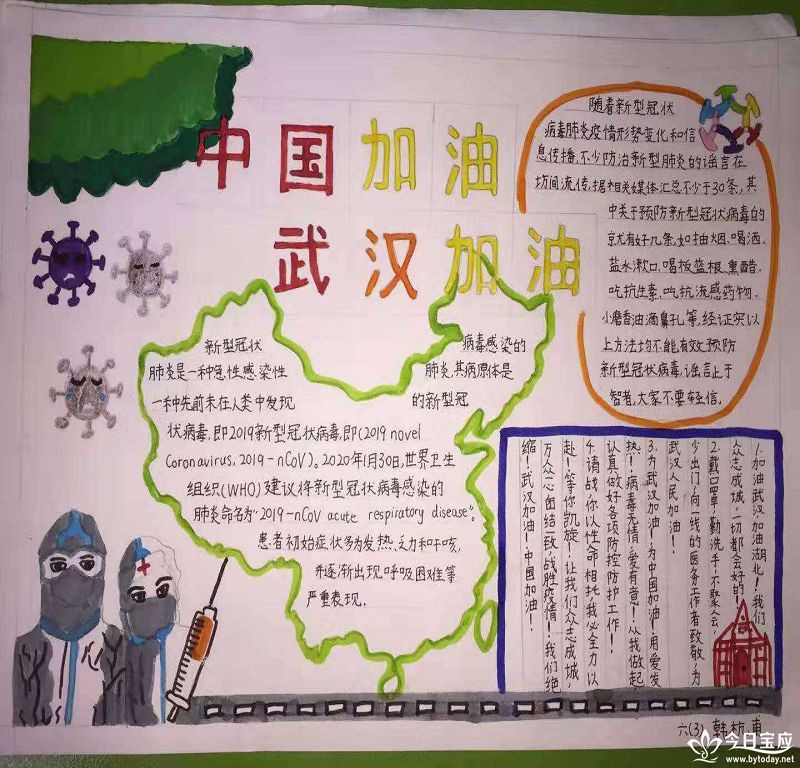 中国加油
武汉加油
随着新型冠状
病毒肺炎疫情形势变化和信
息传播,不少防治新型肺炎的谣言在
坊间流传,据相关媒体汇总不少于30条,其
中关于预防新型冠状病毒的
就有好几条,如抽烟.喝酒.
盐水漱口.喝板蓝根、熏醋.
吃抗生素、吃抗流感药物.
小磨香油滴鼻孔等,经证实以
上方法均不能有效预防
新型冠状病毒,谣言止于
智者,大家不要轻信.
新型冠状病毒感染的
肺炎是一种急性感染性肺炎,其病原体是
一种先前未在人类中发现的新型冠
状病毒,即2019新型冠状病毒,即(2019 novel
Coronavirus, 2019-nCoV)。2020年1月30日,世界卫生
组织(WHO)建议将新型冠状病毒感染的
肺炎命名为"2019-nCoV acute respiratory disease"。
患者初始症状多为发热、乏力和干咳,
并逐渐出现呼吸困难等
严重表现.
1.加油武汉加油湖北！我们
众志成城,一切都会好的！
2.戴口罩,勤洗手,不聚会
少出门,向一线的医务工作者致敬,为
武汉人民加油！
3.为武汉加油！为中国加油！用爱发
热！病毒无情,爱有意！从我做起
认真做好各项防控防护工作！
4.请战,你以性命相托,我必全力以
赴！等你凯旋！让我们众志成城,
万众一心,团结一致,战胜疫情！我们绝
缩！武汉加油！中国加油！
六(3) 韩
今日宝应
www.bytoday.net